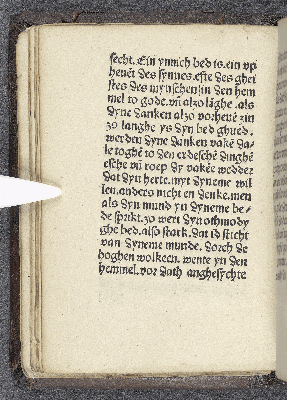 secht. Ein ynnich bed is. ein vp
heuēt des synnes. efte des ghei
stes des mynschen in den hem
mel to gode. vn̄ alzo lāghe. als
dyne danken alzo vorheuē zin
zo langhe ys dyn bed ghued.
werden dyne danken vakē da-
le toghē to den erdeschē dinghē
esche vn̄ roep dy vakē wedder
dat dyn herte. myt dyneme wil
len. anders nicht en denke. men
als dyn mund yn dyneme be-
de sprikt. zo wert dyn othmody
ghe bed. also stark. dat id sticht
van dyneme munde. dorch de
hoghen wolkeen. wente yn den
hemmel. vor dath anghesychte